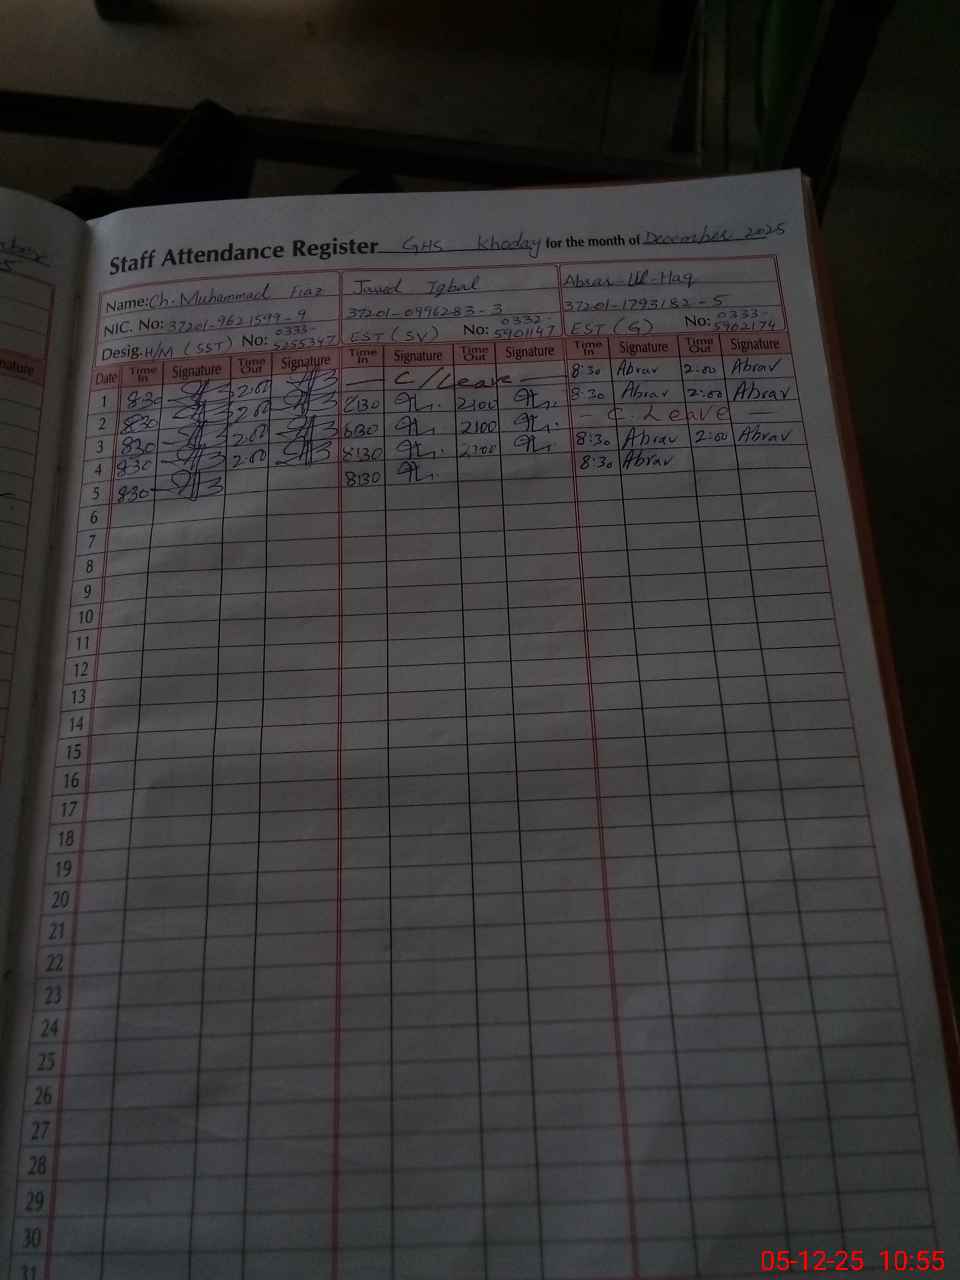 Staff Attendance Register GHS Khoday for the month of December 2025
Name: Ch. Muhammad Fiaz Javed Iqbal Absar-Ul-Haq
NIC. No: 37201-9621599-9 37201-0996283-3 37201-1793182-5
Desig. H/M (SST) No: 0333-5255347 EST (SV) No: 0332-5901147 EST (G) No: 0333-5902174
Date Time In Signature Time Out Signature Time In Signature Time Out Signature Time In Signature Time Out Signature
1 830 2.00 C/Leave 8:30 Abrar 2:00 Abrar
2 830 2.00 8:30 2:00 8:30 Abrar 2:00 Abrar
3 830 2.00 8:30 2:00 C. Leave
4 830 2.00 8:30 2:00 8:30 Abrar 2:00 Abrar
5 830 8:30 8:30 Abrar
6
7
8
9
10
11
12
13
14
15
16
17
18
19
20
21
22
23
24
25
26
27
28
29
30
31
nature
05-12-25 10:55